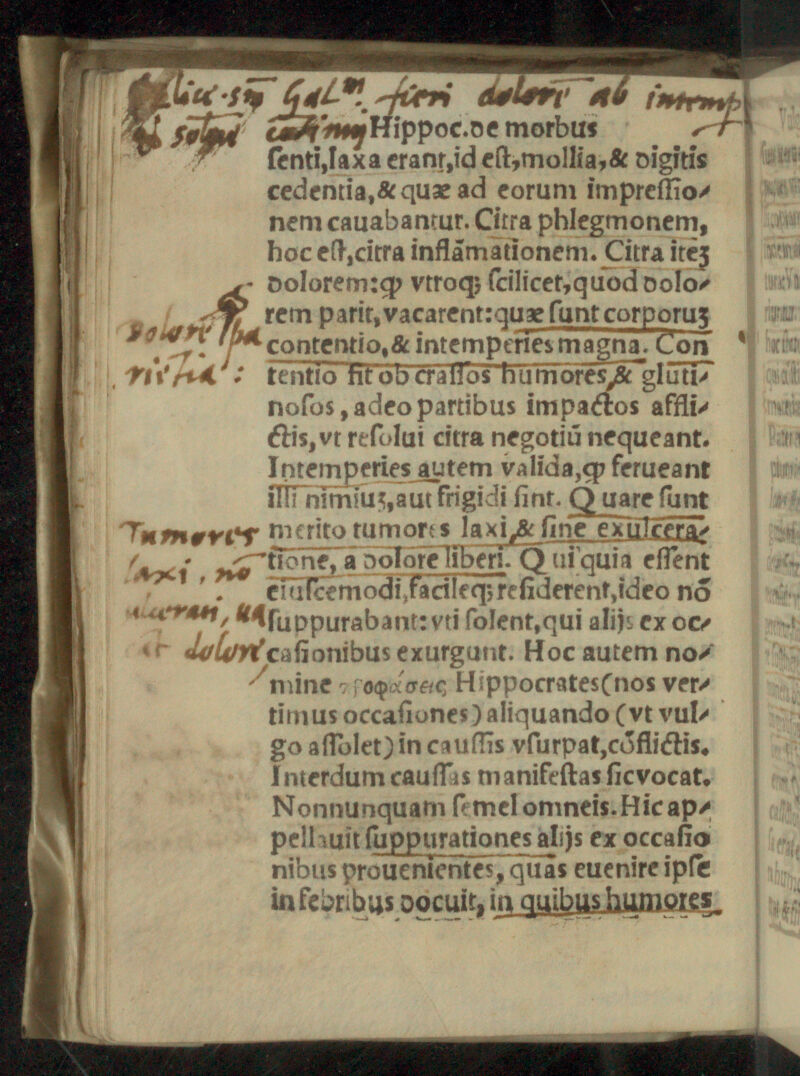 GalM. fieri dolore ab
Hippoc.de morbus
senti,laxa erant,id est,mollia,& digitis
cedentia,& quæ ad eorum impressio⸗
nem cauabantur. Citra phlegmonem,
hoc est,citra inflāmationem. Citra iteʒ
dolorem:ꝙ vtroqꝫ scilicet,quod dolo⸗
rem parit,vacarent:quæ sunt corporuʒ
contentio,& intemperies magna. Con
tentio fit ob crassos humores,& gluti⸗
nosos,adeo partibus impactos affli⸗
ctis,vt resolui citra negotiū nequeant.
Intemperies autem valida,ꝙ ferueant
illi nimiuʒ,aut frigidi sint. Quare sunt
Tumores
merito tumores laxi,& sine exulcera⸗
laxi, no
tione, a dolore liberi. Qui quia essent
eiuscemodi,facileqꝫ residerent,ideo nō
suppurabant: vti solent,qui alijs ex oc⸗
dolore
casionibus exurgunt. Hoc autem no⸗
mine προφάσεις Hippocrates(nos ver⸗
timus occasiones) aliquando (vt vul⸗
go assolet) in caussis vsurpat,cōflictis.
Interdum caussas manifestas sic vocat.
Nonnunquam semel omneis.Hic ap⸗
pellauit suppurationes alijs ex occasio
nibus prouenientes, quas euenire ipse
in febribus docuit, in quibus humores